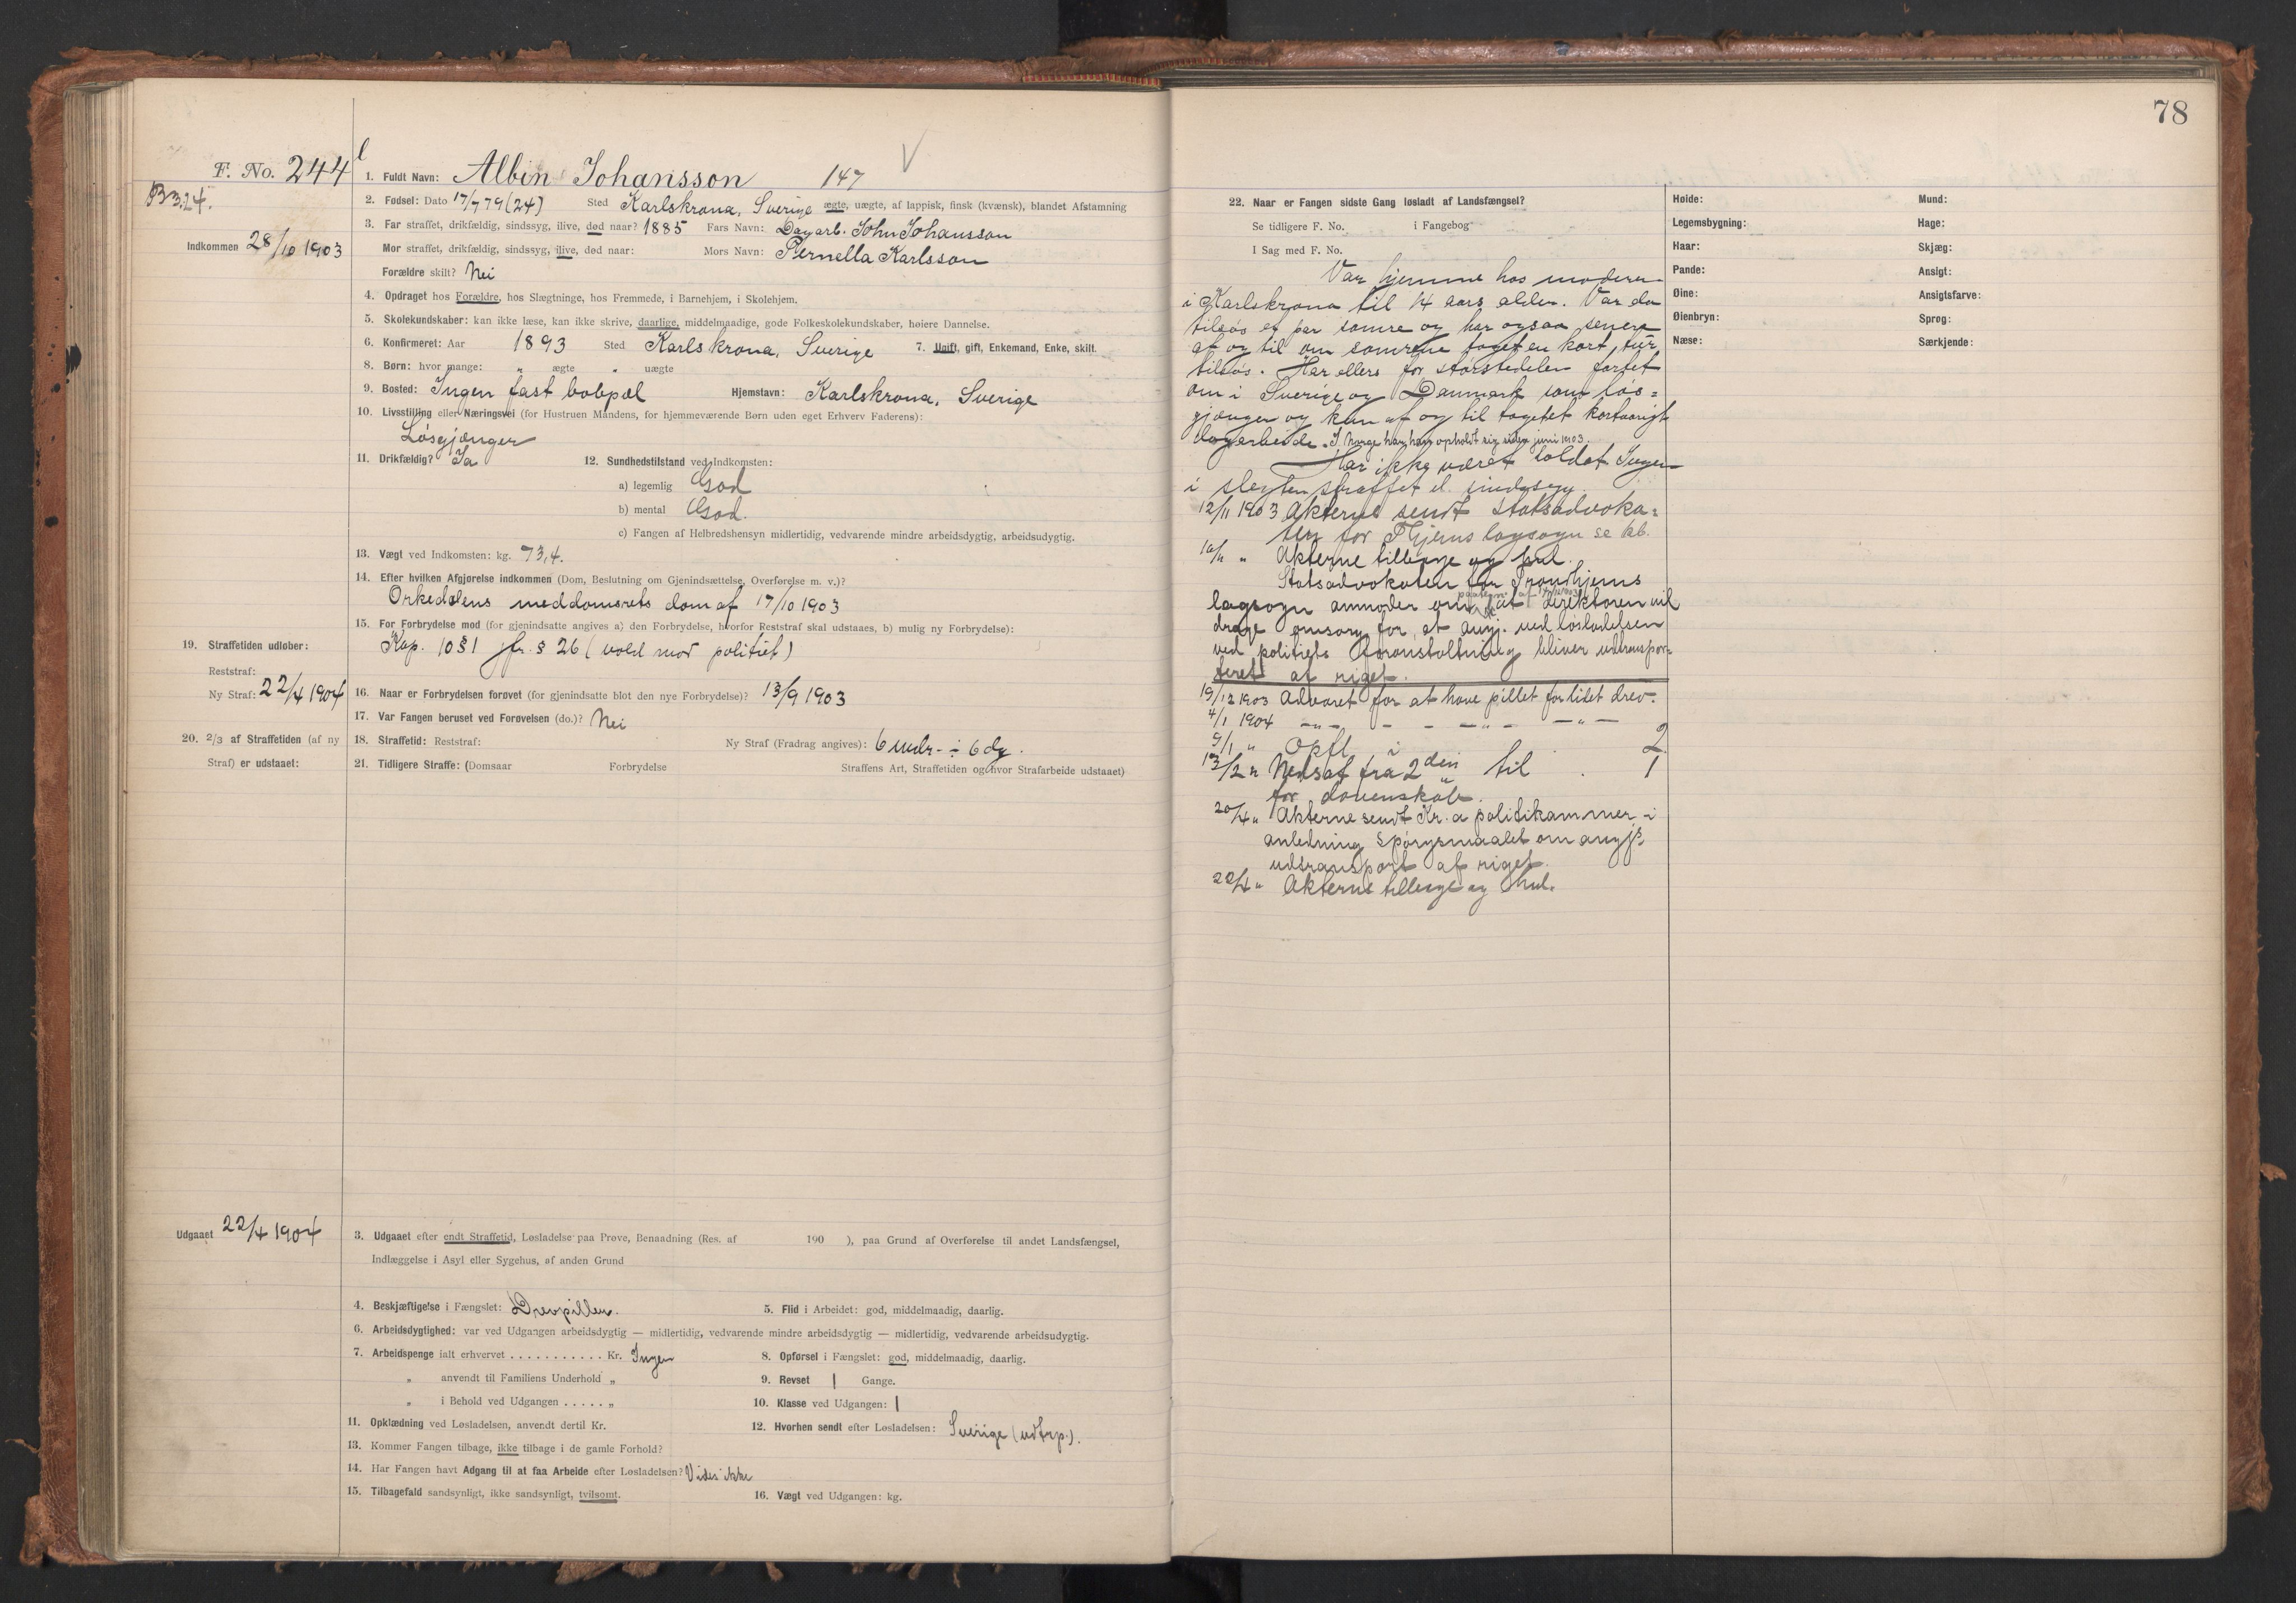 F. No. 244
B 3.24.
Indkommen 28/10 1903
1. Fuldt Navn: Albin Johansson 147
2. Fødsel: Dato 17/7 79 (24) Sted Karlskrona, Sverige ægte, uægte, af lappisk, finsk (kvænsk), blandet Afstamning
3. Far straffet, drikfældig, sindssyg, ilive, død naar? 1885 Fars Navn: Dagarb. John Johansson
Mor straffet, drikfældig, sindssyg, ilive, død naar: Mors Navn: Pernella Karlsson
Forældre skilt? Nei
4. Opdraget hos Forældre, hos Slægtninge, hos Fremmede, i Barnehjem, i Skolehjem.
5. Skolekundskaber: kan ikke læse, kan ikke skrive, daarlige, middelmaadige, gode Folkeskolekundskaber, høiere Dannelse.
6. Konfirmeret: Aar 1893 Sted Karlskrona, Sverige 7. Ugift, gift, Enkemand, Enke, skilt.
8. Børn: hvor mange: " ægte " uægte
9. Bosted: Ingen fast bobpæl Hjemstavn: Karlskrona, Sverige
10. Livsstilling eller Næringsvei (for Hustruen Mandens, for hjemmeværende Børn uden eget Erhverv Faderens):
Løsgjænger
11. Drikfældig? Ja 12. Sundhedstilstand ved Indkomsten:
a) legemlig God
b) mental God.
c) Fangen af Helbredshensyn midlertidig, vedvarende mindre arbeidsdygtig, arbeidsudygtig.
13. Vægt ved Indkomsten: kg. 73,4.
14. Efter hvilken Afgjørelse indkommen (Dom, Beslutning om Gjenindsættelse, Overførelse m. v.)?
Orkedalens meddomsrets dom af 17/10 1903
15. For Forbrydelse mod (for gjenindsatte angives a) den Forbrydelse, hvorfor Reststraf skal udstaaes, b) mulig ny Forbrydelse):
Kap. 10 § 1 jfr. § 26 (vold mod politiet)
19. Straffetiden udløber:
Reststraf:
Ny Straf: 22/4 1904
16. Naar er Forbrydelsen forøvet (for gjenindsatte blot den nye Forbrydelse)? 13/9 1903
17. Var Fangen beruset ved Forøvelsen (do.)? Nei
20. 2/3 af Straffetiden (af ny
Straf) er udstaaet:
18. Straffetid: Reststraf: Ny Straf (Fradrag angives): 6 mdr. ÷ 6 dg.
21. Tidligere Straffe: (Domsaar Forbrydelse Straffens Art, Straffetiden og hvor Strafarbeide udstaaet)
Udgaaet 22/4 1904
3. Udgaaet efter endt Straffetid, Løsladelse paa Prøve, Benaadning (Res. af 190 ), paa Grund af Overførelse til andet Landsfængsel,
Indlæggelse i Asyl eller Sygehus, af anden Grund
4. Beskjæftigelse i Fængslet: Drevpiller. 5. Flid i Arbeidet: god, middelmaadig, daarlig.
6. Arbeidsdygtighed: var ved Udgangen arbeidsdygtig — midlertidig, vedvarende mindre arbeidsdygtig — midlertidig, vedvarende arbeidsudygtig.
7. Arbeidspenge ialt erhvervet . . . . . . . . . . . Kr. Ingen 8. Opførsel i Fængslet: god, middelmaadig, daarlig.
" anvendt til Familiens Underhold " 9. Revset 1 Gange.
" i Behold ved Udgangen . . . . . " 10. Klasse ved Udgangen: 1
11. Opklædning ved Løsladelsen, anvendt dertil Kr. 12. Hvorhen sendt efter Løsladelsen: Sverige (udtrp.).
13. Kommer Fangen tilbage, ikke tilbage i de gamle Forhold?
14. Har Fangen havt Adgang til at faa Arbeide efter Løsladelsen? Vides ikke
15. Tilbagefald sandsynligt, ikke sandsynligt, tvilsomt. 16. Vægt ved Udgangen: kg.
78
22. Naar er Fangen sidste Gang løsladt af Landsfængsel?
Se tidligere F. No. i Fangebog
I Sag med F. No.
Var hjemme hos moderen
i Karlskrona til 14 aars alder. Var da
tilsjøs et par somre og har ogsaa senere
af og til om somrene taget en kort tur
tilsjøs. Har ellers for størstedelen fartet
om i Sverige og Danmark som løs=
gjænger og kun af og til taget et kortvarigt
dagarbeide. I Norge har han opholdt sig siden juni 1903.
Har ikke været soldat. Ingen
i slegten straffet el. sindssyg.
12/11 1903 Akterne sendt statsadvoka=
ten for Thjems lagsogn se kb.
" Akterne tilbage og hul.
Statsadvokaten for Trondhjems
lagsogn anmoder om at direktøren vil
drage omsorg for, at angj. ved løsladelsen
ved politiets foranstaltning bliver udtranspor=
teret af riget.
19/12 1903 Advaret for at have pillet for lidet drev.
4/1 1904 — " — — — — " — — " —
9/1 " Opfl. i 2
13/2 " Nedsat fra 2den til 1
for dovenskab.
20/4 " Akterne sendt Kr.a politikammer i
anledning spørgsmaalet om angjs
udtransport af riget.
22/4 " Akterne tilbage og hul.
Høide: Mund:
Legemsbygning: Hage:
Haar: Skjæg:
Pande: Ansigt:
Øine: Ansigtsfarve:
Øienbryn: Sprog:
Næse: Særkjende: